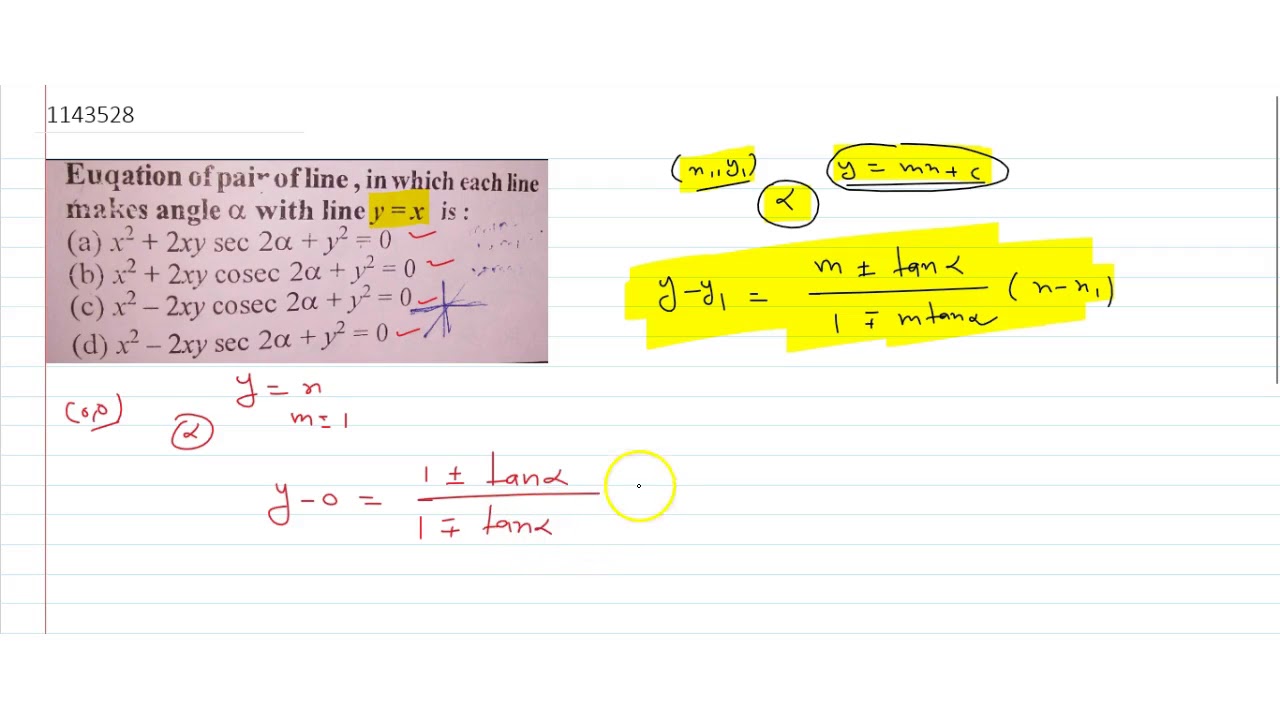 1143528
Euqation of pair of line, in which each line
makes angle α with line y = x is :
(a) x² + 2xy sec 2α + y² = 0
(b) x² + 2xy cosec 2α + y² = 0
(c) x² – 2xy cosec 2α + y² = 0
(d) x² – 2xy sec 2α + y² = 0
(x₁, y₁) y = mx + c
α
y – y₁ = (m ± tanα)/(1 ∓ m tanα) (x – x₁)
(0,0) α y = x
m = 1
y – 0 = (1 ± tanα)/(1 ∓ tanα)